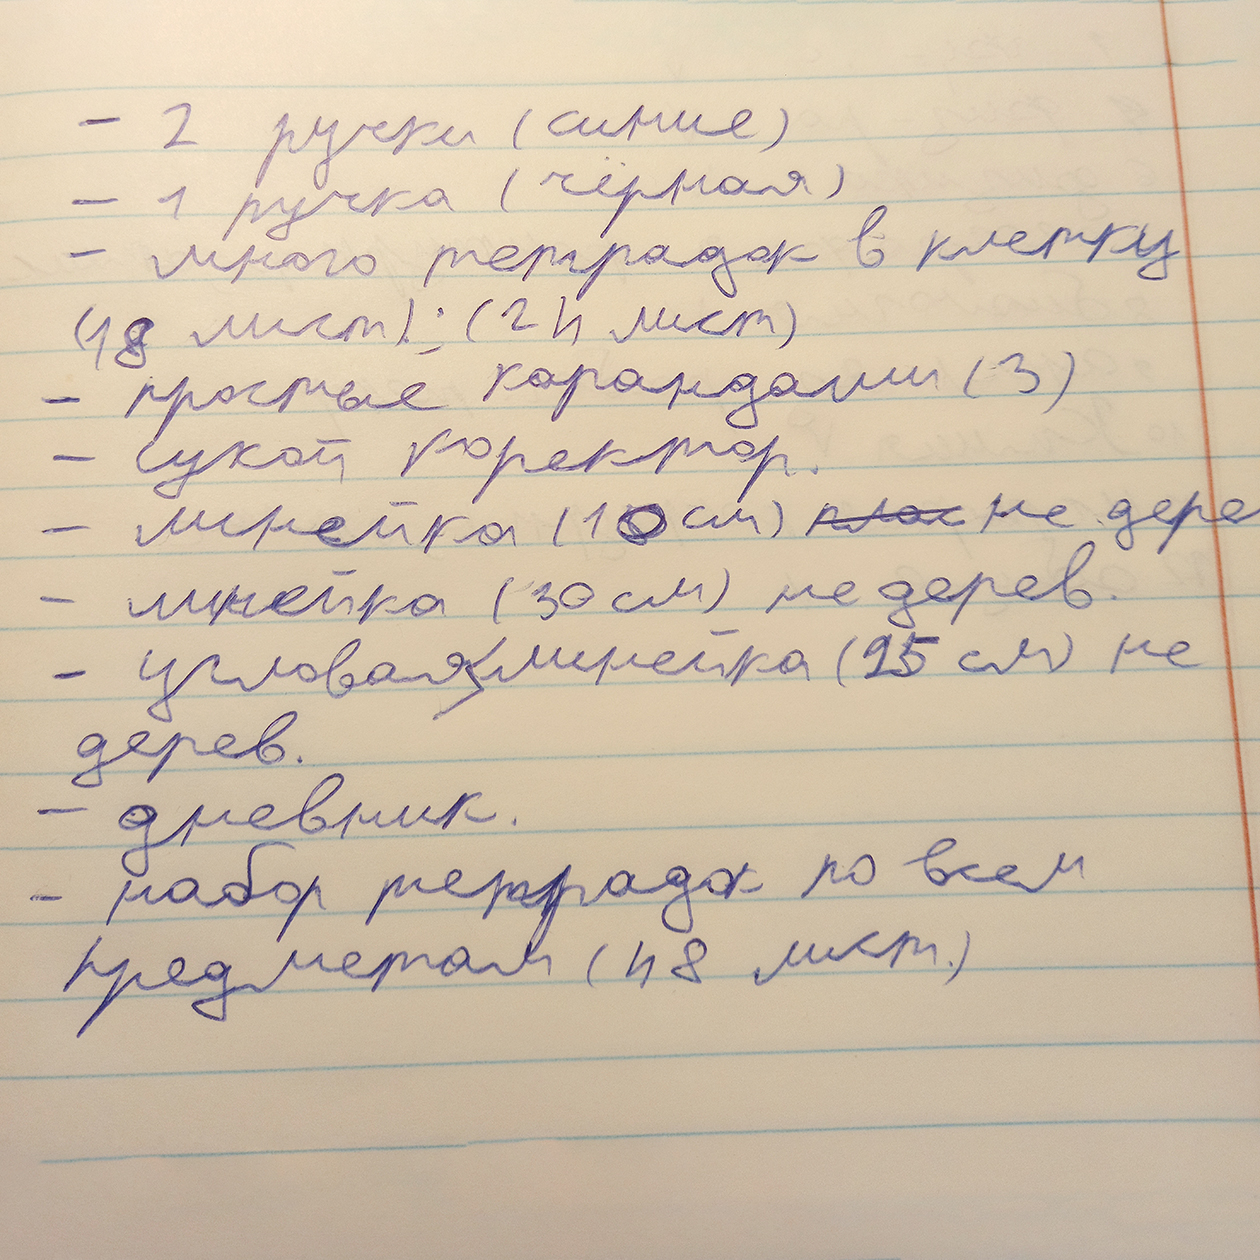 - 2 ручки (синие)
- 1 ручка (чёрная)
- много тетрадок в клетку
(18 лист); (24 лист)
- простые карандаши (3)
- сухой коректор.
- линейка (10 см) не дере
- линейка (30 см) не дерев.
- угловая линейка (25 см) не
дерев.
- дневник.
- набор тетрадок по всем
предметам (48 лист.)